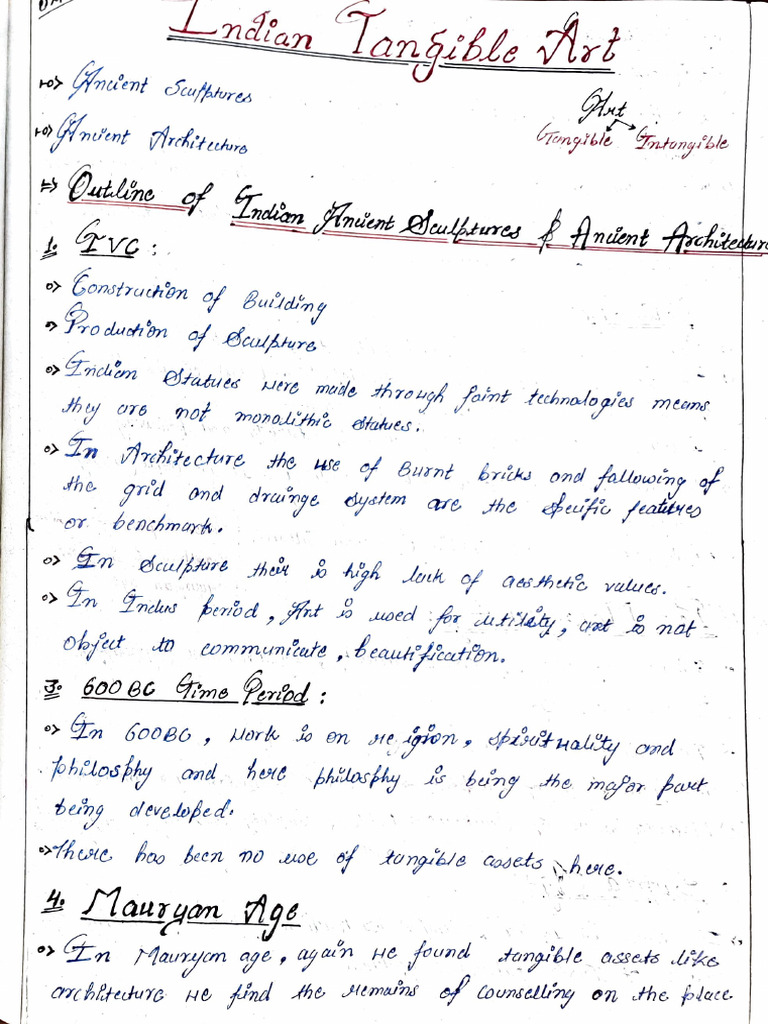 Indian Tangible Art
Ancient Sculptures
Art
Ancient Architecture
Tangible Intangible
Outline of Indian Ancient Sculptures & Ancient Architecture
1. IVC :
Construction of Building
Production of Sculpture
Indian Statues were made through joint technologies means
they are not monolithic statues.
In Architecture the use of Burnt bricks and following of
the grid and drainge system are the specific features
or benchmark.
In Sculpture their is high lack of aesthetic values.
In Indus period, Art is used for utility, art is not
object to communicate, beautification.
3. 600 BC Time Period :
In 600BC, work is on religion, spirituality and
philosphy and here philosphy is being the major part
being developed.
There has been no use of tangible assets here.
4. Mauryan Age
In Mauryan age, again we found tangible assets like
architecture we find the remains of counselling on the place